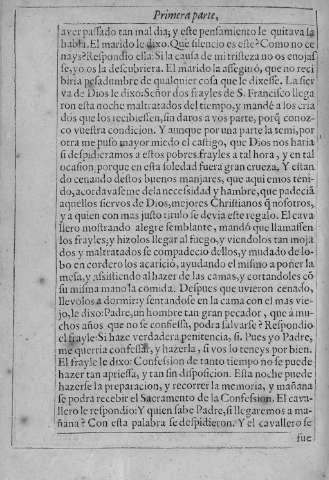 Primera parte,
aver passado tan mal dia; y este pensamiento le quitava la
habla. El marido le dixo. Que silencio es este? Como no ce
nays? Respondio ella: Si la causa de mi tristeza no os enojas
se, yo os la descubriera. El marido la asseguró, que no reci
biria pesadumbre de qualquier cosa que le dixesse. La sier
va de Dios le dixo: Señor dos frayles de S. Francisco llega
ron esta noche maltratados del tiempo, y mandé a los cria
dos que los recibiessen, sin daros a vos parte, porq̃ conoz-
co vuestra condicion. Y aunque por una parte la temi, por
otra me puso mayor miedo el castigo, que Dios nos haria
si despidieramos a estos pobres frayles a tal hora, y en tal
ocasion, porque en esta soledad fuera gran crueza. Y estan
do cenando destos buenos manjares, que aqui emos teni-
do, acordavaseme de la necessidad y hambre, que padeciã
aquellos siervos de Dios, mejores Christianos q̃ nosotros,
y a quien con mas justo titulo se devia este regalo. El cava
llero mostrando alegre semblante, mandó que llamassen
los frayles, y hizolos llegar al fuego, y viendolos tan moja
dos y maltratados se compadecio dellos, y mudado de lo-
bo en cordero los acarició, ayudando el mismo a poner la
mesa, y assistiendo al hazer de las camas, y cortandoles cõ
su misma mano la comida. Despues que uvieron cenado,
llevolos a dormir, y sentandose en la cama con el mas vie-
jo, le dixo: Padre, un hombre tan gran pecador, que à mu-
chos años que no se confiessa, podra salvarse? Respondio
el frayle: Si haze verdadera penitencia, si. Pues yo Padre,
me querria confessar, y hazerla, si vos lo teneys por bien.
El frayle le dixo: Confession de tanto tiempo no se puede
hazer tan apriessa, y tan sin disposicion. Esta noche puede
hazerse la preparacion, y recorrer la memoria, y mañana
se podra recibir el Sacramento de la Confession. El cava-
llero le respondio: Y quien sabe Padre, si llegaremos a ma-
ñana? Con esta palabra se despidieron. Y el cavallero se
fue